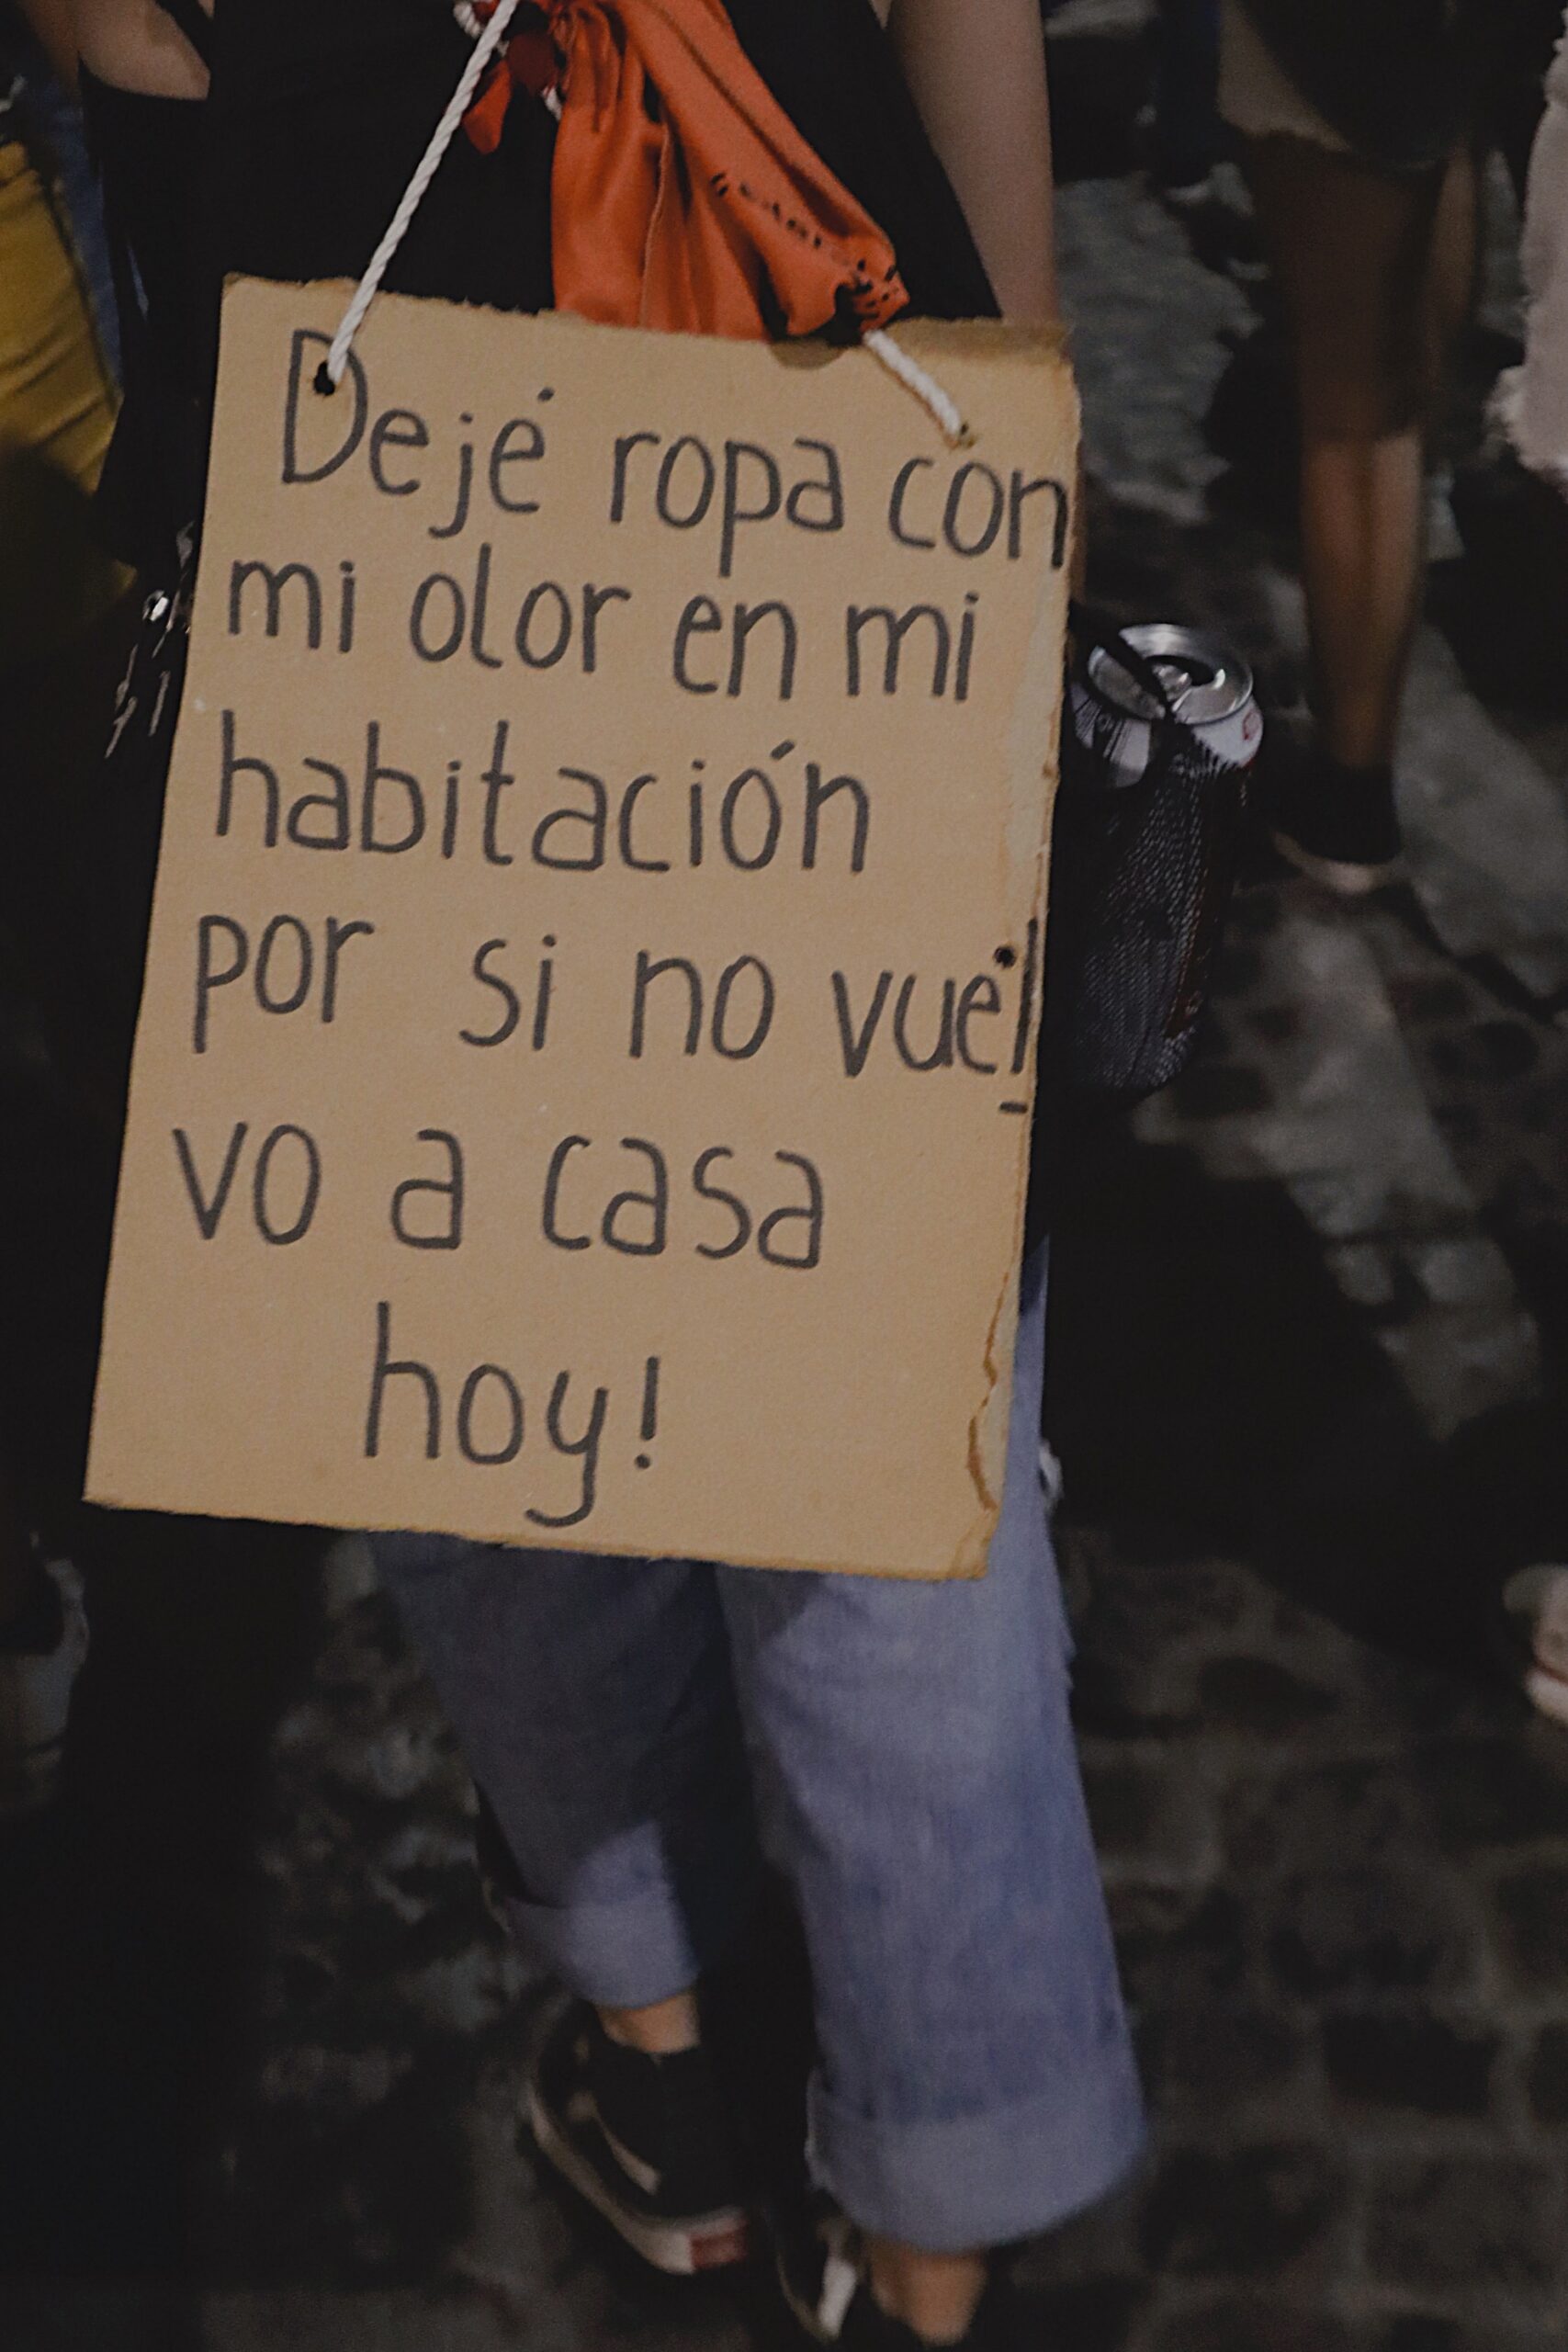 Dejé ropa con
mi olor en mi
habitación
por si no vuel
-
vo a casa
hoy!